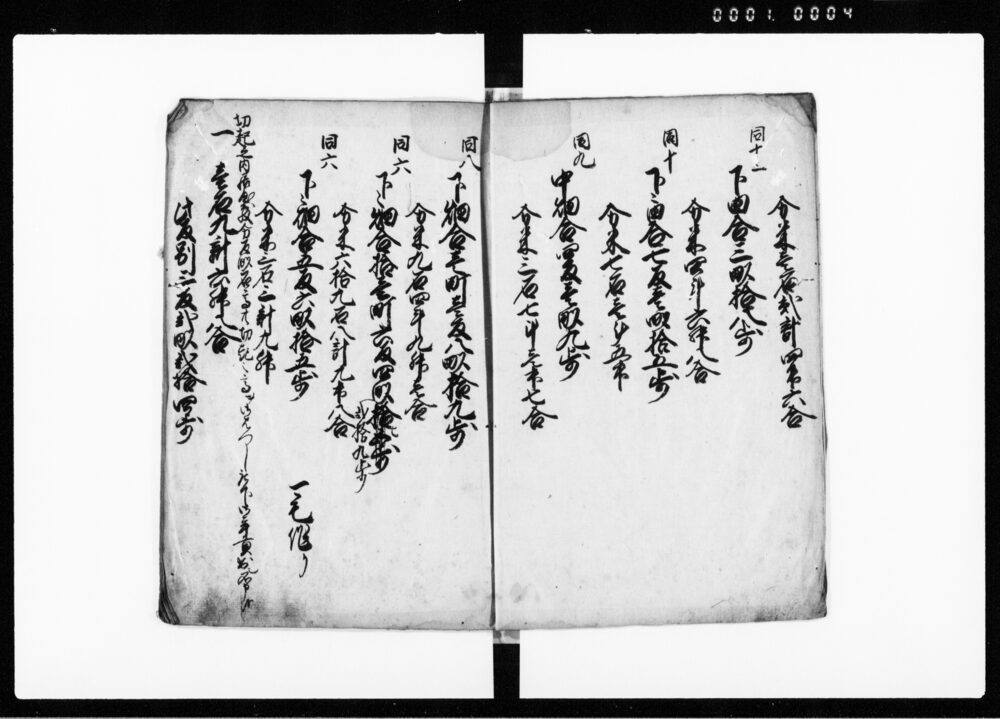 0001. 0004
分米壱石弐斗四升六合
同十二
下田合三畝拾八歩
分米四斗六升八合
同十
下々田合七反壱畝拾五歩
分米七石壱斗五升
同九
中畑合四反壱畝九歩
分米三石七斗壱升七合
同八
下畑合壱町壱反八畝拾九歩
分米九石四斗九升壱合
同六
下々畑合拾壱町六反四畝
弐拾九歩
分米六拾九石八斗九升八合
同六
下々畑合五反六畝拾五歩
一毛作り
分米三石三斗九升
切起之内
一 壱石九斗六升八合
此反別三反弐畝弐拾四歩